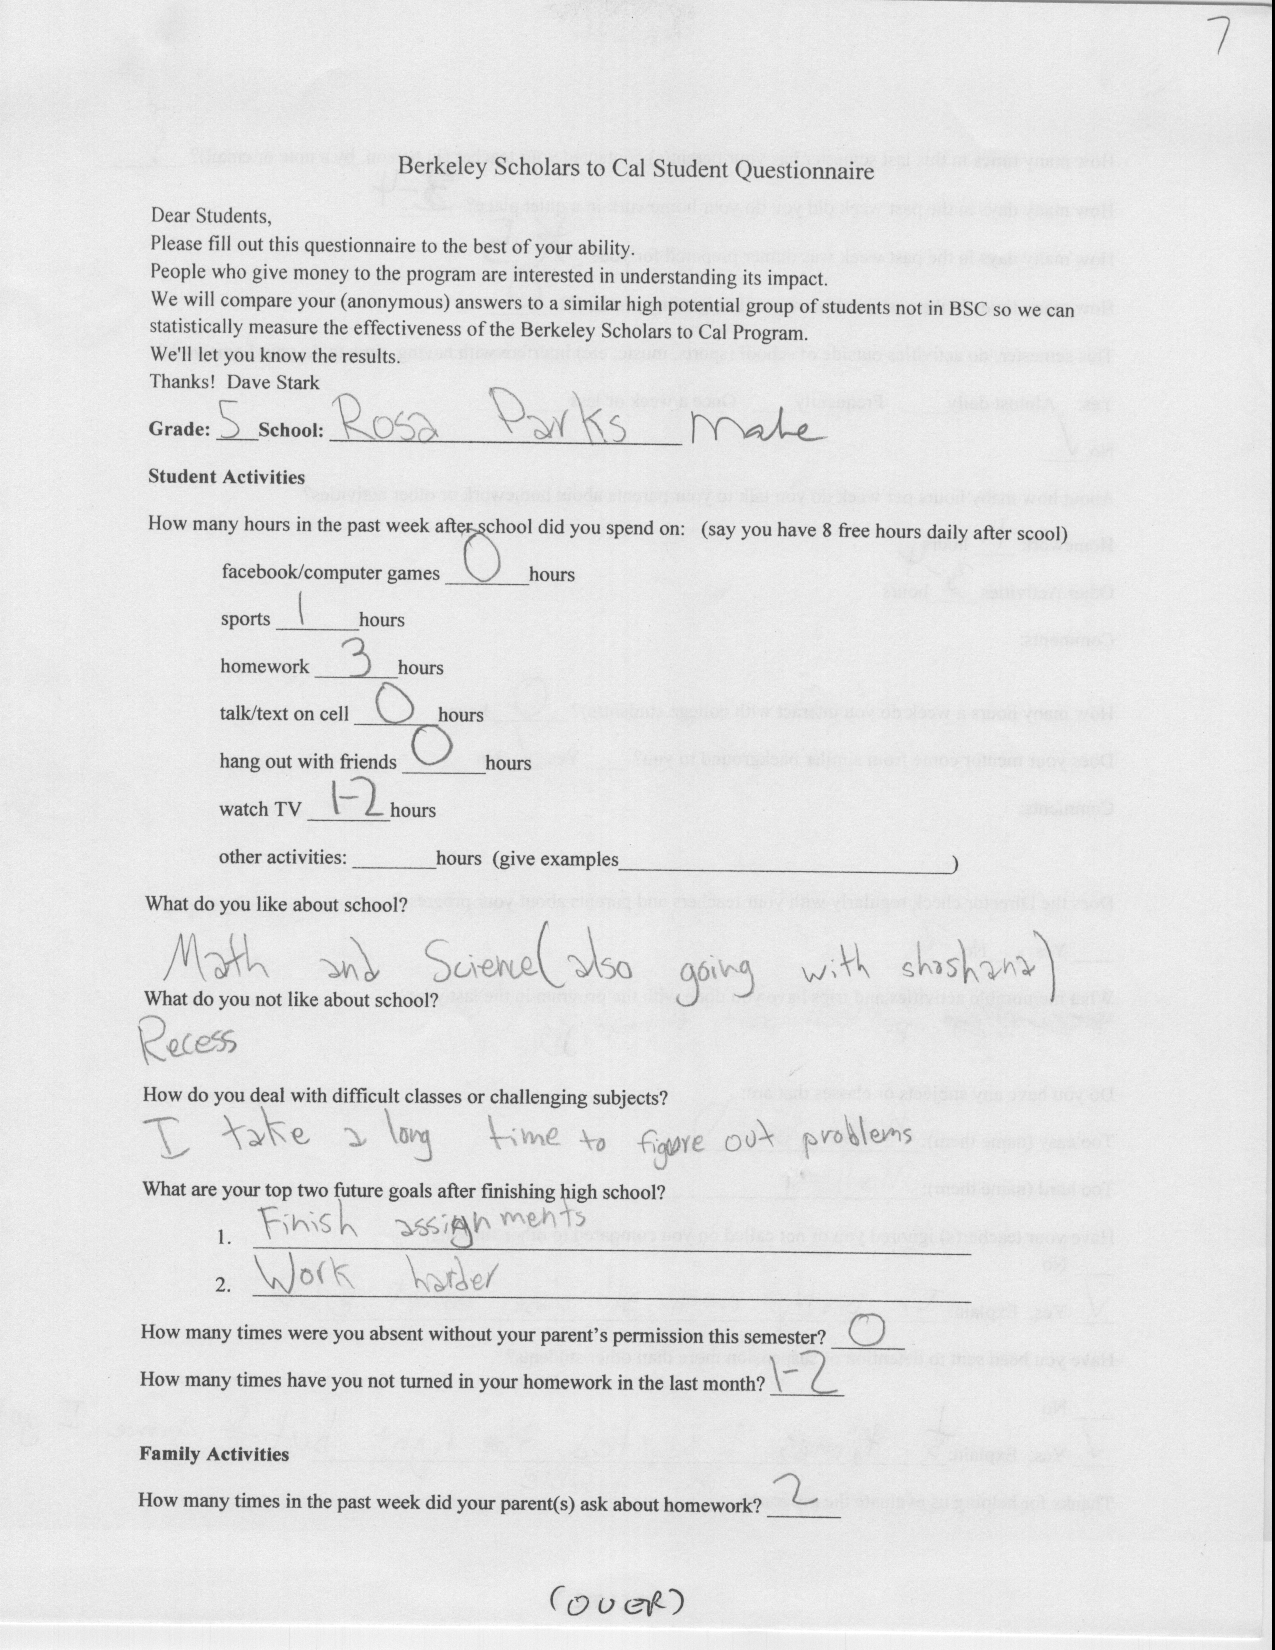 7
Berkeley Scholars to Cal Student Questionnaire
Dear Students,
Please fill out this questionnaire to the best of your ability.
People who give money to the program are interested in understanding its impact.
We will compare your (anonymous) answers to a similar high potential group of students not in BSC so we can
statistically measure the effectiveness of the Berkeley Scholars to Cal Program.
We'll let you know the results.
Thanks! Dave Stark
Grade: 5 School: Rosa Parks Male
Student Activities
How many hours in the past week after school did you spend on: (say you have 8 free hours daily after scool)
facebook/computer games 0 hours
sports 1 hours
homework 3 hours
talk/text on cell 0 hours
hang out with friends 0 hours
watch TV 1-2 hours
other activities: ________ hours (give examples________)
What do you like about school?
Math and Science (also going with shashana)
What do you not like about school?
Recess
How do you deal with difficult classes or challenging subjects?
I take a long time to figure out problems
What are your top two future goals after finishing high school?
1. Finish assignments
2. Work harder
How many times were you absent without your parent's permission this semester? 0
How many times have you not turned in your homework in the last month? 1-2
Family Activities
How many times in the past week did your parent(s) ask about homework? 2
(OVER)